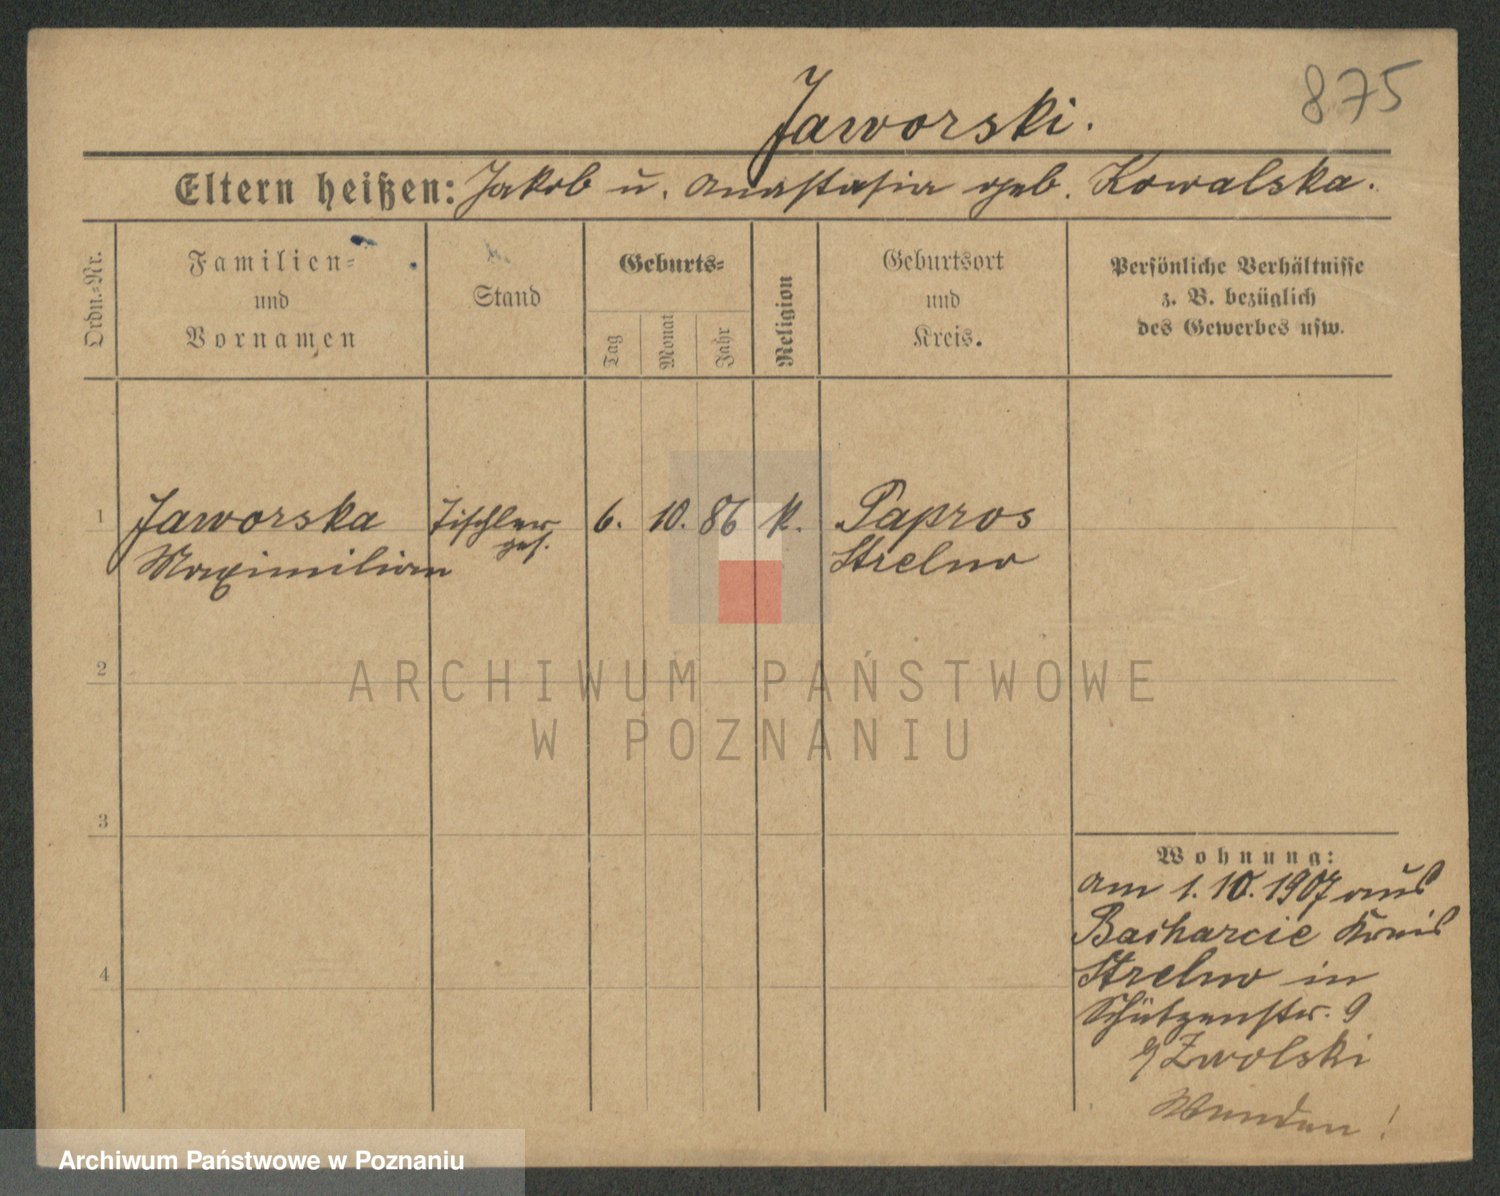 875
Jaworski.
Eltern heißen: Jakob u. Anastasia geb. Kowalska.
Ordn.=Nr.
Familien=
und
Vornamen
Stand
Geburts=
Tag
Monat
Jahr
Religion
Geburtsort
und
Kreis.
Persönliche Verhältnisse
z. B. bezüglich
des Gewerbes usw.
1 Jaworska Tischler 6. 10. 86 k. Papros
Maximilian ges. Strelno
2
ARCHIWUM PAŃSTWOWE
W POZNANIU
3
Wohnung:
am 1. 10. 1907 aus
Bacharcie Kreis
4
Strelno in
Schützenstr. 9
b/ Zwolski
Wenden!
Archiwum Państwowe w Poznaniu